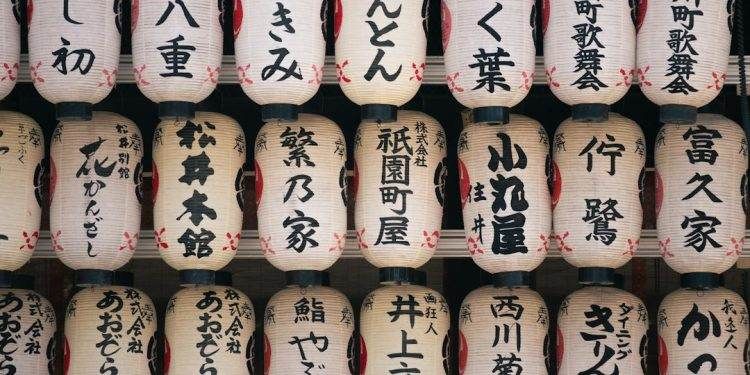 し初
八重
きみ
んとん
く葉
町歌舞会
町歌舞会
松井別館
花かんざし
松井本館
繁乃家
株式会社
祇園町屋
小丸屋
住井
佇鷺
富久家
株式会社
あおぞら
株式会社
あおぞら
株式会社
あおぞら
鮨やぞ
画狂人
井上六
西川菊
ダイニング
きりん
かつ